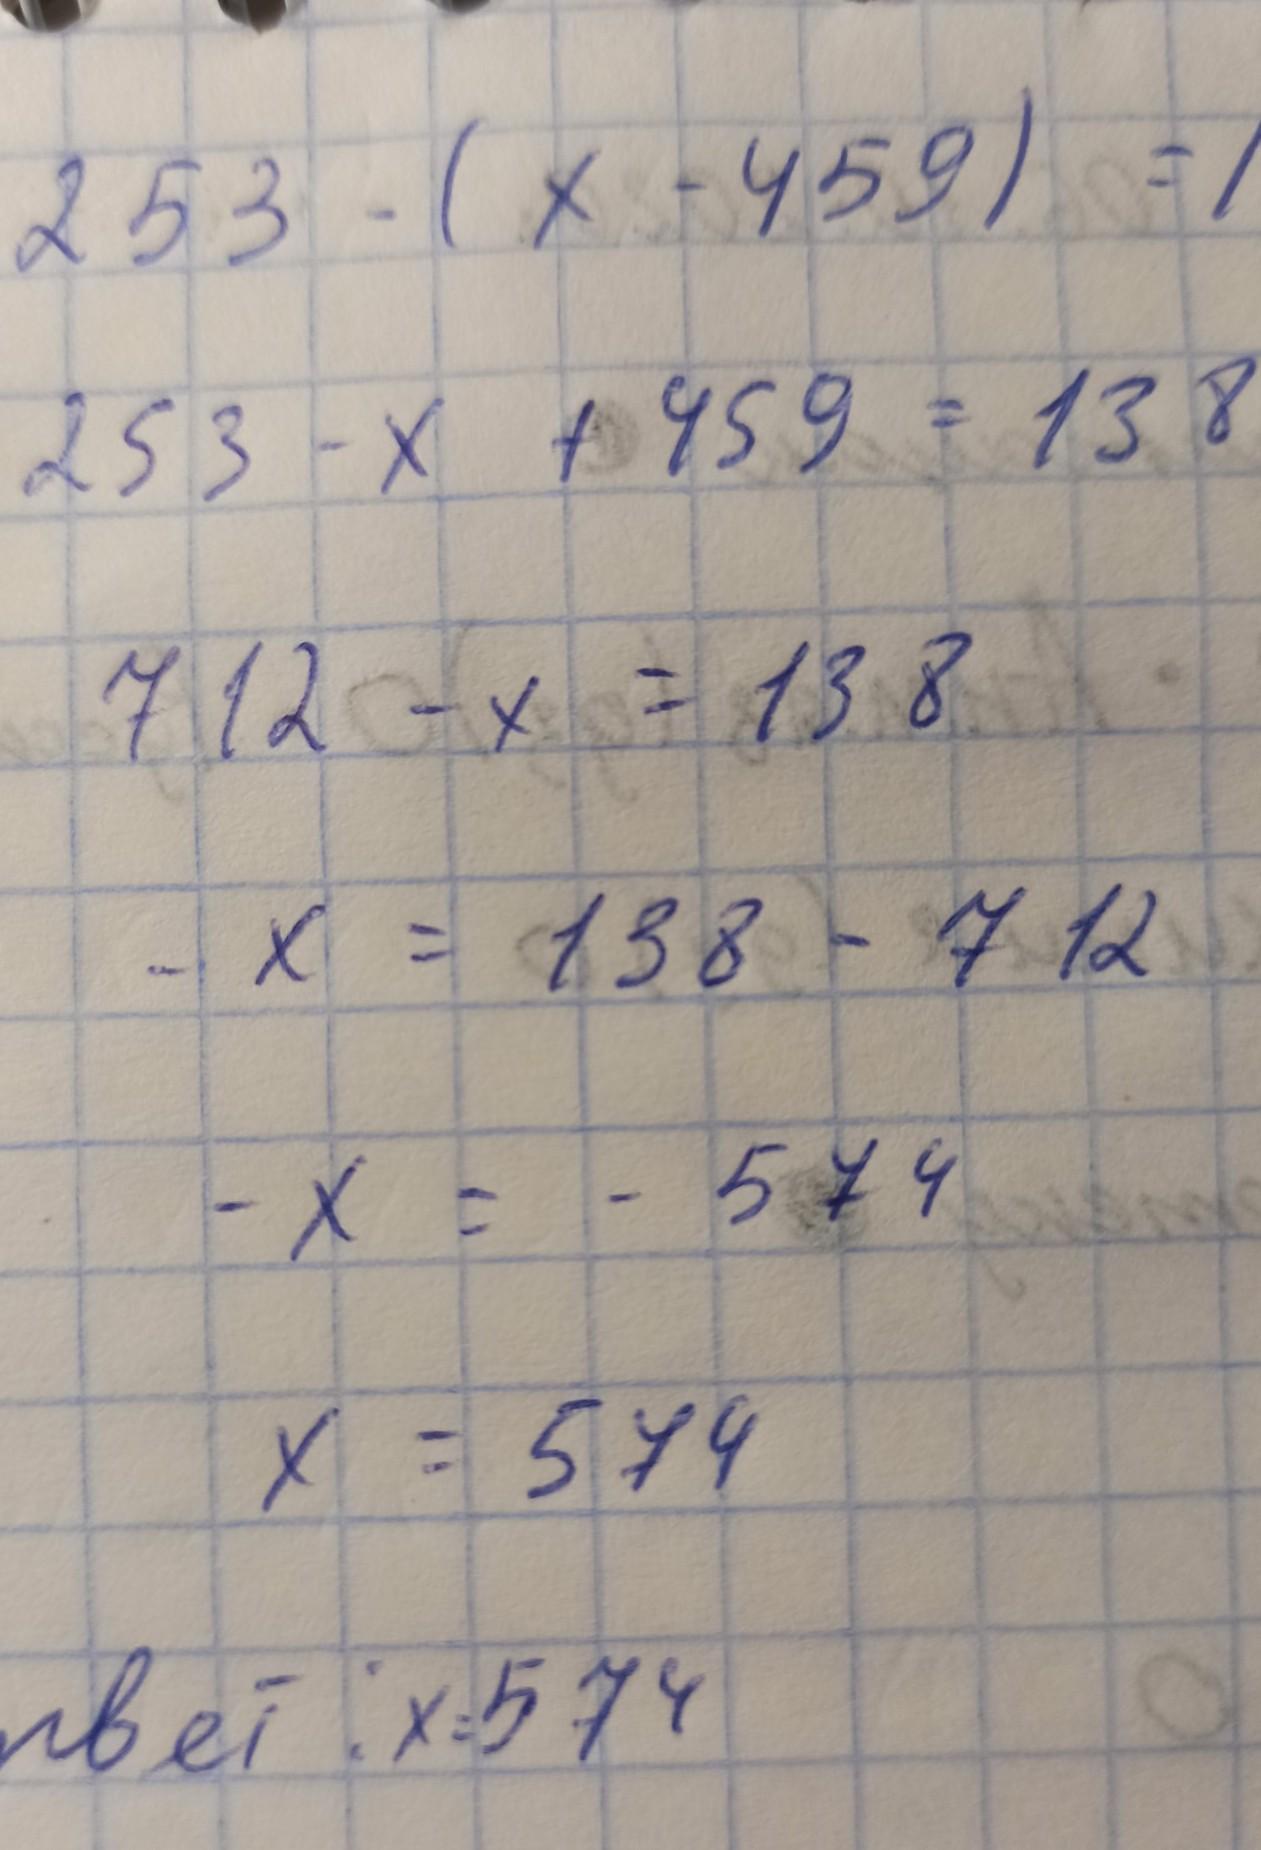 253 - (x - 459) = 1
253 - x + 459 = 138
712 - x = 138
- x = 138 - 712
- x = - 574
x = 574
твет: x=574